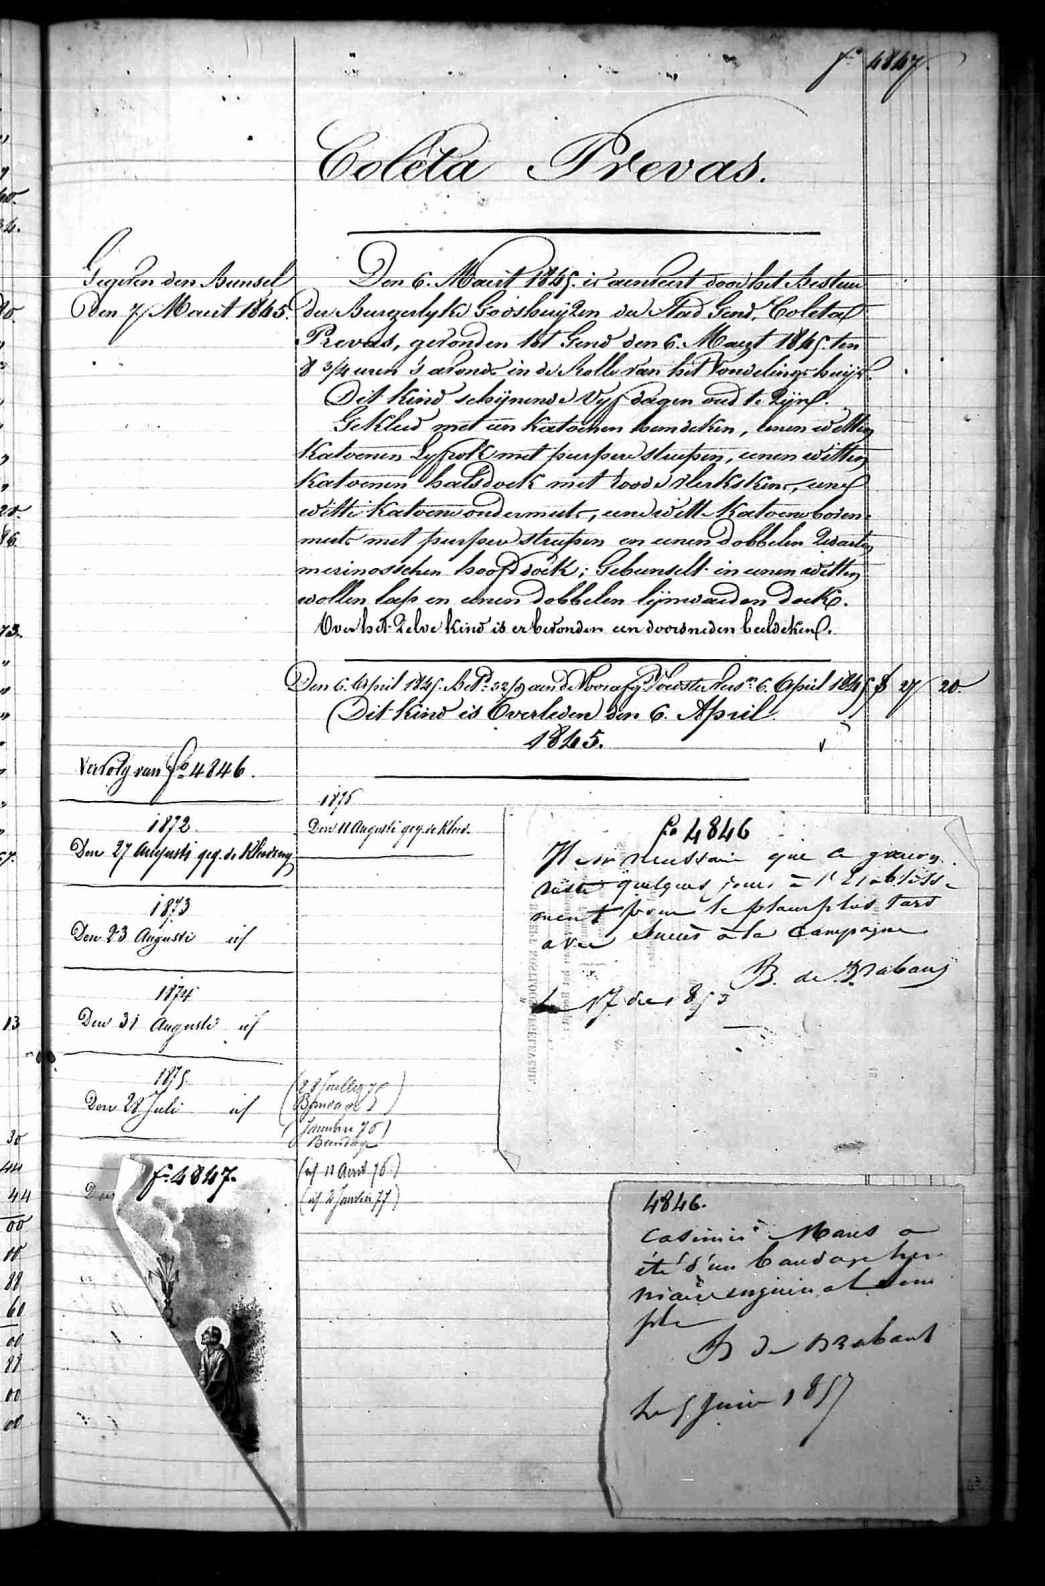 fº 4847.
Coleta Prevas.
Gegeven den Bunsel
den 7 Maert 1845.
Den 6. Maert 1845. is aenveert door het Bestuur
der Burgerlyke Godshuyzen der Stad Gend, Coleta
Prevas, gevonden tot Gend den 6. Maert 1845. ten
8 3/4 uren 's avonds in de Rolle van het Vondelingshuys.
Dit kind schijnende Vyf dagen oud te zijn.
Gekleed met een katoenen hemdeken, eenen witten
katoenen Lyfrok met purpere streepen, eenen witten
katoenen halsdoek met roode vlerkskens, eene
witte katoene ondermuts, eene witte katoene boven-
muts met purpere streepen en eenen dobbelen zwarten
merinosschen hoofddoek; Gebunselt in eenen witten
wollen laps en eenen dobbelen lijnwaeden doek.
Over het zelve kind is er bevonden een doorsneden beeldeken.
Den 6. April 1845. Bet. aen de Voorafg. Voedster 6. April 1845 f 27 20.
Dit kind is Overleden den 6. April
1845.
Vervolg van fº 4846.
1872
Den 27 Augusti geg. de Kleeding
1873
Den 23 Augusti id
1874
Den 31 Augusti id
1875
Den 28 Juli id
1876
Den 11 Augusti geg. de Kleed.
(28 Juillet 75
Bandage)
(Janvier 76
Bandage)
(id 11 Avril 76)
(id 2 Janvier 77)
fº 4847.
fº 4846
Il est necessaire que ce garcon
reste quelques jours à l'Etablisse-
ment pour le placer plus tard
avec succès à la Campagne
B. de Brabant
Le 17 1853
4846.
Casimir Maes a
été d'un bandage her-
niaire
B de Brabant
Le 5 Juin 1857